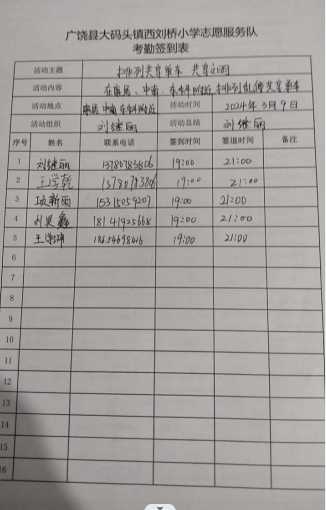 广饶县大码头镇西刘桥小学志愿服务队
考勤签到表
活动主题 排列共享单车 共享文明
活动内容 在康居、中南、东水科附近排列乱停共享单车
活动地点 康居 中南 附近 活动时间 2024年3月9日
活动组织 刘继丽 活动总结 刘继丽
序号 姓名 联系电话 签到时间 签退时间 备注
1 刘继丽 13780783806 19:00 21:00
2 王学乾 13780783806 19:00 21:00
3 项新雨 15315059207 19:00 21:00
4 刘昊鑫 18141925668 19:00 21:00
5 19:00 21:00
6
7
8
9
10
11
12
13
14
15
16